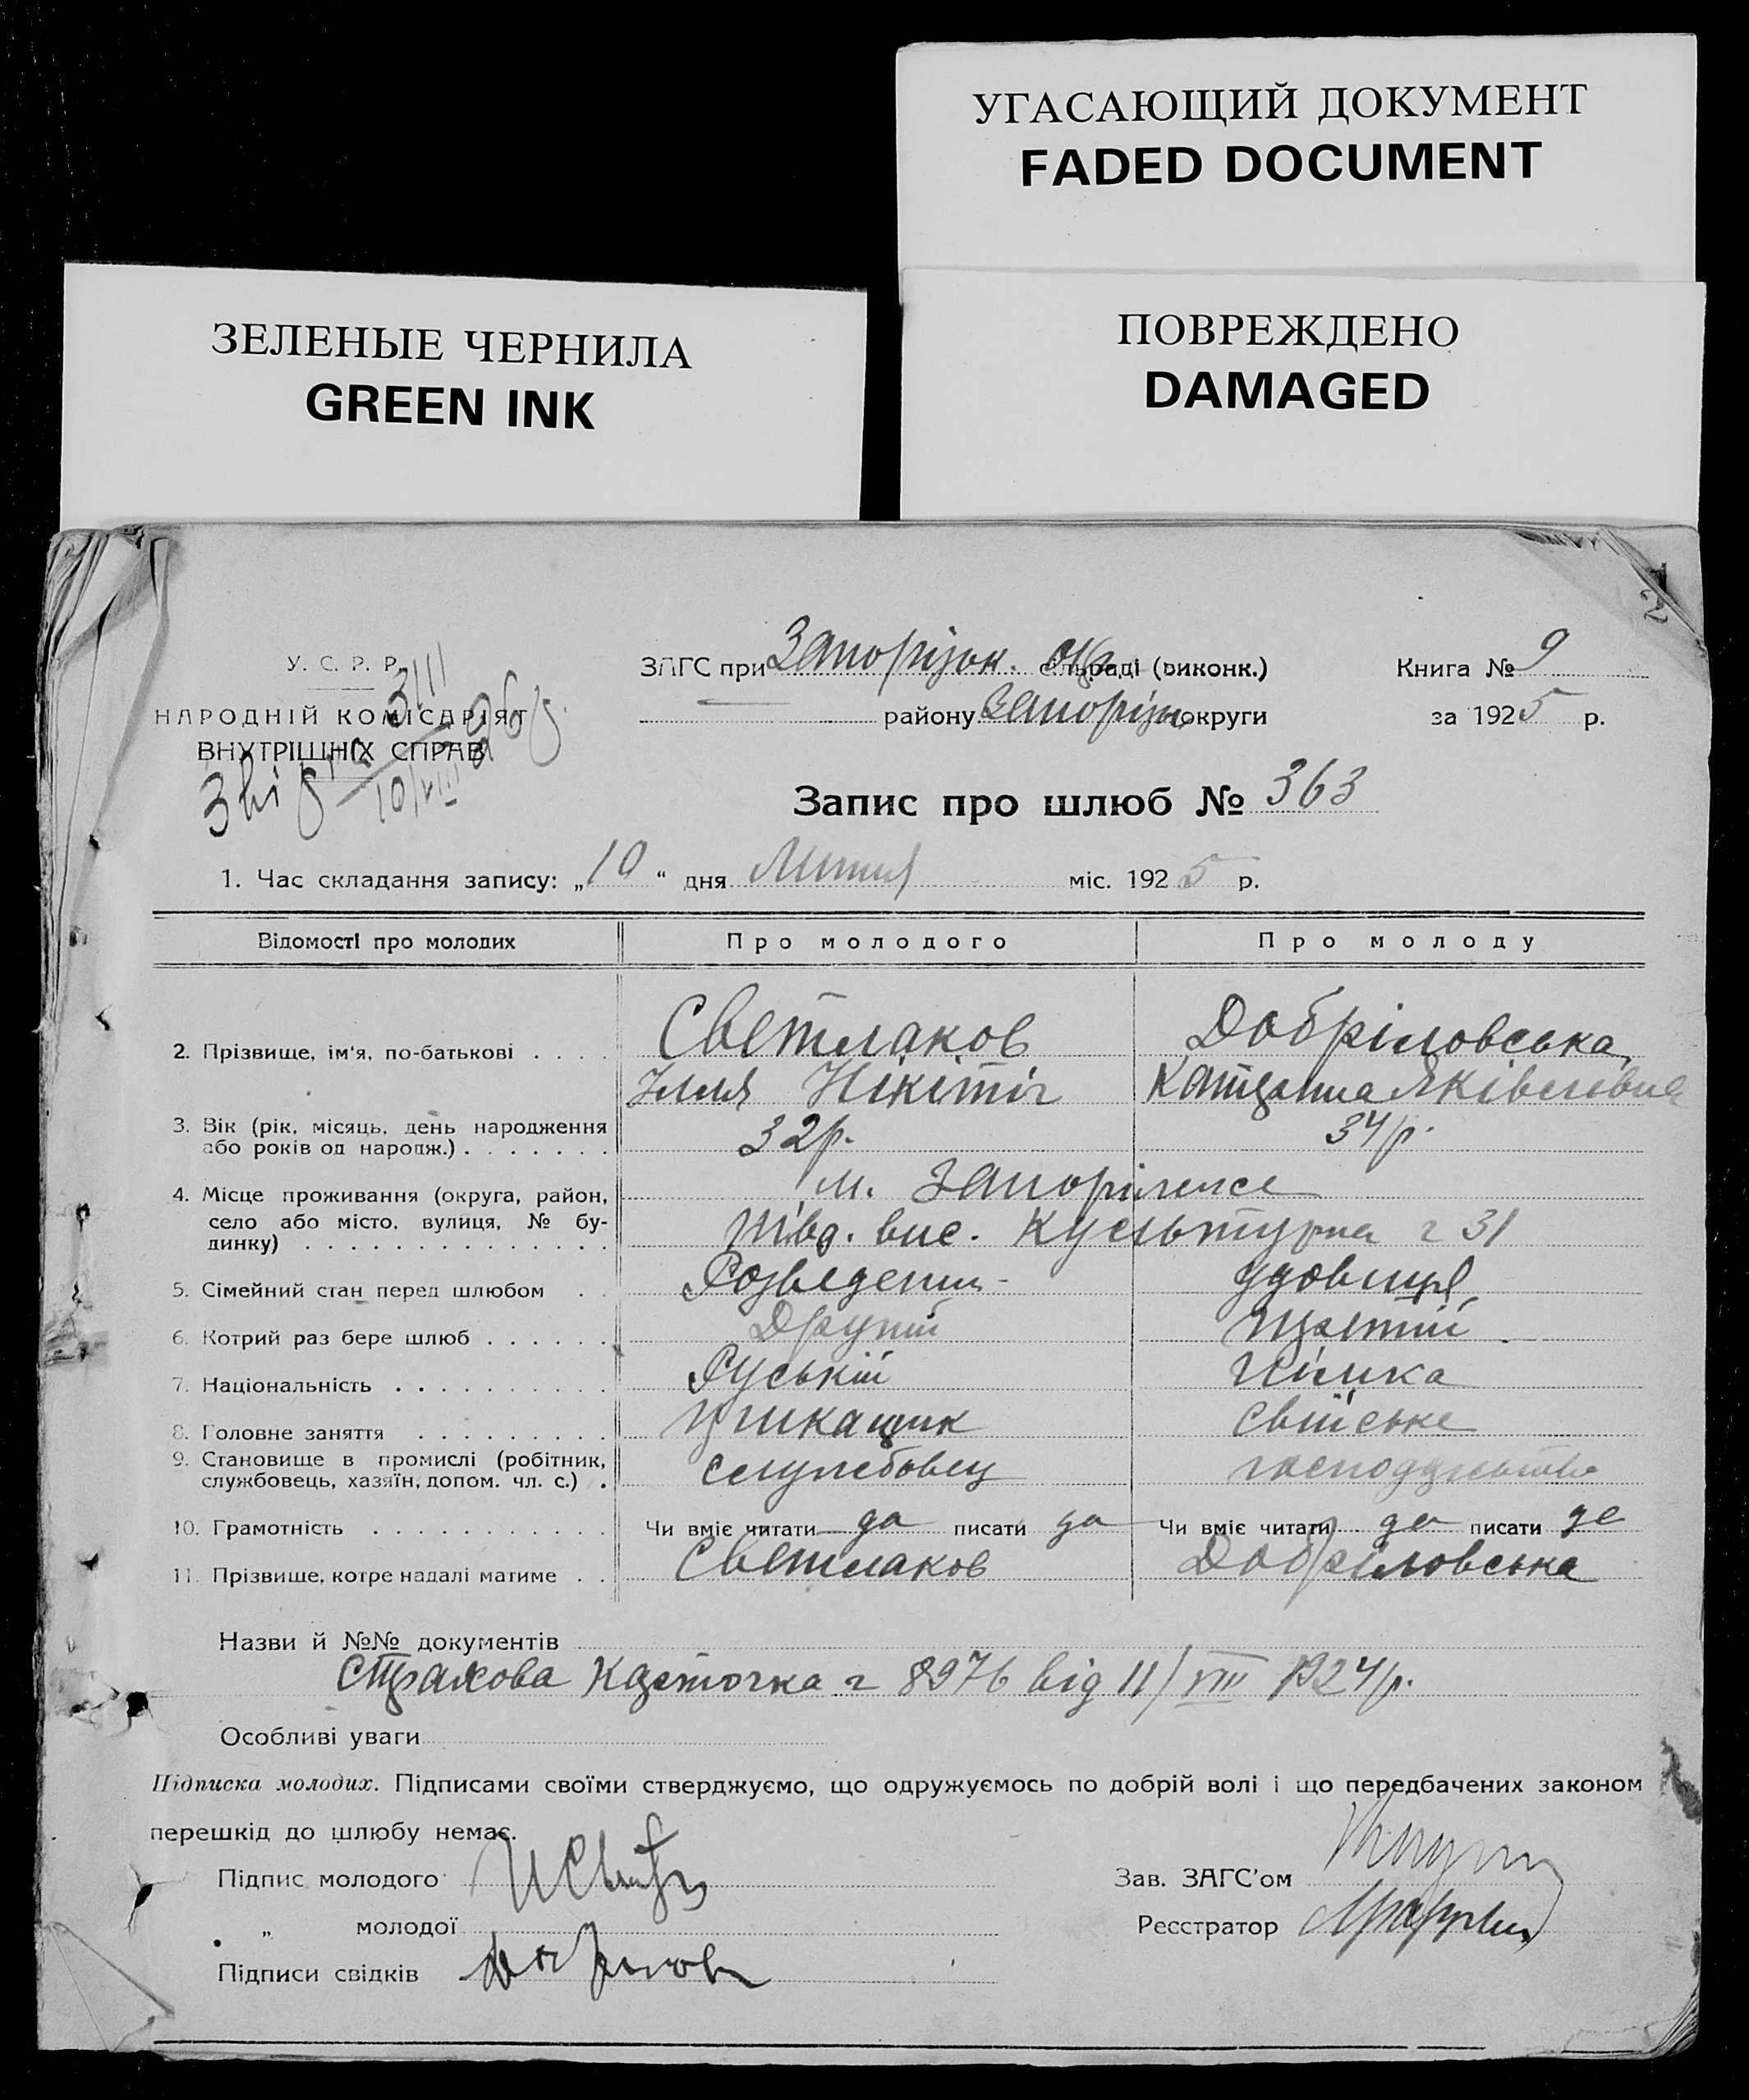 УГАСАЮЩИЙ ДОКУМЕНТ
FADED DOCUMENT
ЗЕЛЕНЫЕ ЧЕРНИЛА
GREEN INK
ПОВРЕЖДЕНО
DAMAGED
У. С. Р. Р.
НАРОДНІЙ КОМІСАРІЯТ
ВНУТРІШНІХ СПРАВ
ЗАГС при Запорізьк. сільраді (виконк.)
району Запорізьк округи
Книга № 9
за 1925 р.
Запис про шлюб № 363
1. Час складання запису: „10“ дня Липня міс. 1925 р.
Відомості про молодих Про молодого Про молоду
2. Прізвище, ім'я, по-батькові . . . . Светлаков Добріловська
Ілля Нікітіч Катерина Яківлівна
3. Вік (рік, місяць, день народження 32р. 34р.
або років од народж.) . . . . . . .
4. Місце проживання (округа, район, м. Запоріжже
село або місто, вулиця, № бу- Півд. вис. Культурна 31
динку) . . . . . . . . . . . . . .
5. Сімейний стан перед шлюбом . . Розведений удовиця
6. Котрий раз бере шлюб . . . . . . Другий Третій
7. Національність . . . . . . . . . . Руській Німка
8. Головне заняття . . . . . . . . . прикащик свійське
9. Становище в промислі (робітник,
службовець, хазяїн, допом. чл. с.) . службовец господарство
10. Грамотність . . . . . . . . . . . Чи вміє читати да писати да Чи вміє читати да писати да
11. Прізвище, котре надалі матиме . . Светлаков Добріловська
Назви й №№ документів
Страхова Карточка 8976 від 11/VIII 1924р.
Особливі уваги
Підписка молодих. Підписами своїми стверджуємо, що одружуємось по добрій волі і що передбачених законом
перешкід до шлюбу немає.
Підпис молодого
Зав. ЗАГС'ом
„ молодої
Реєстратор
Підписи свідків